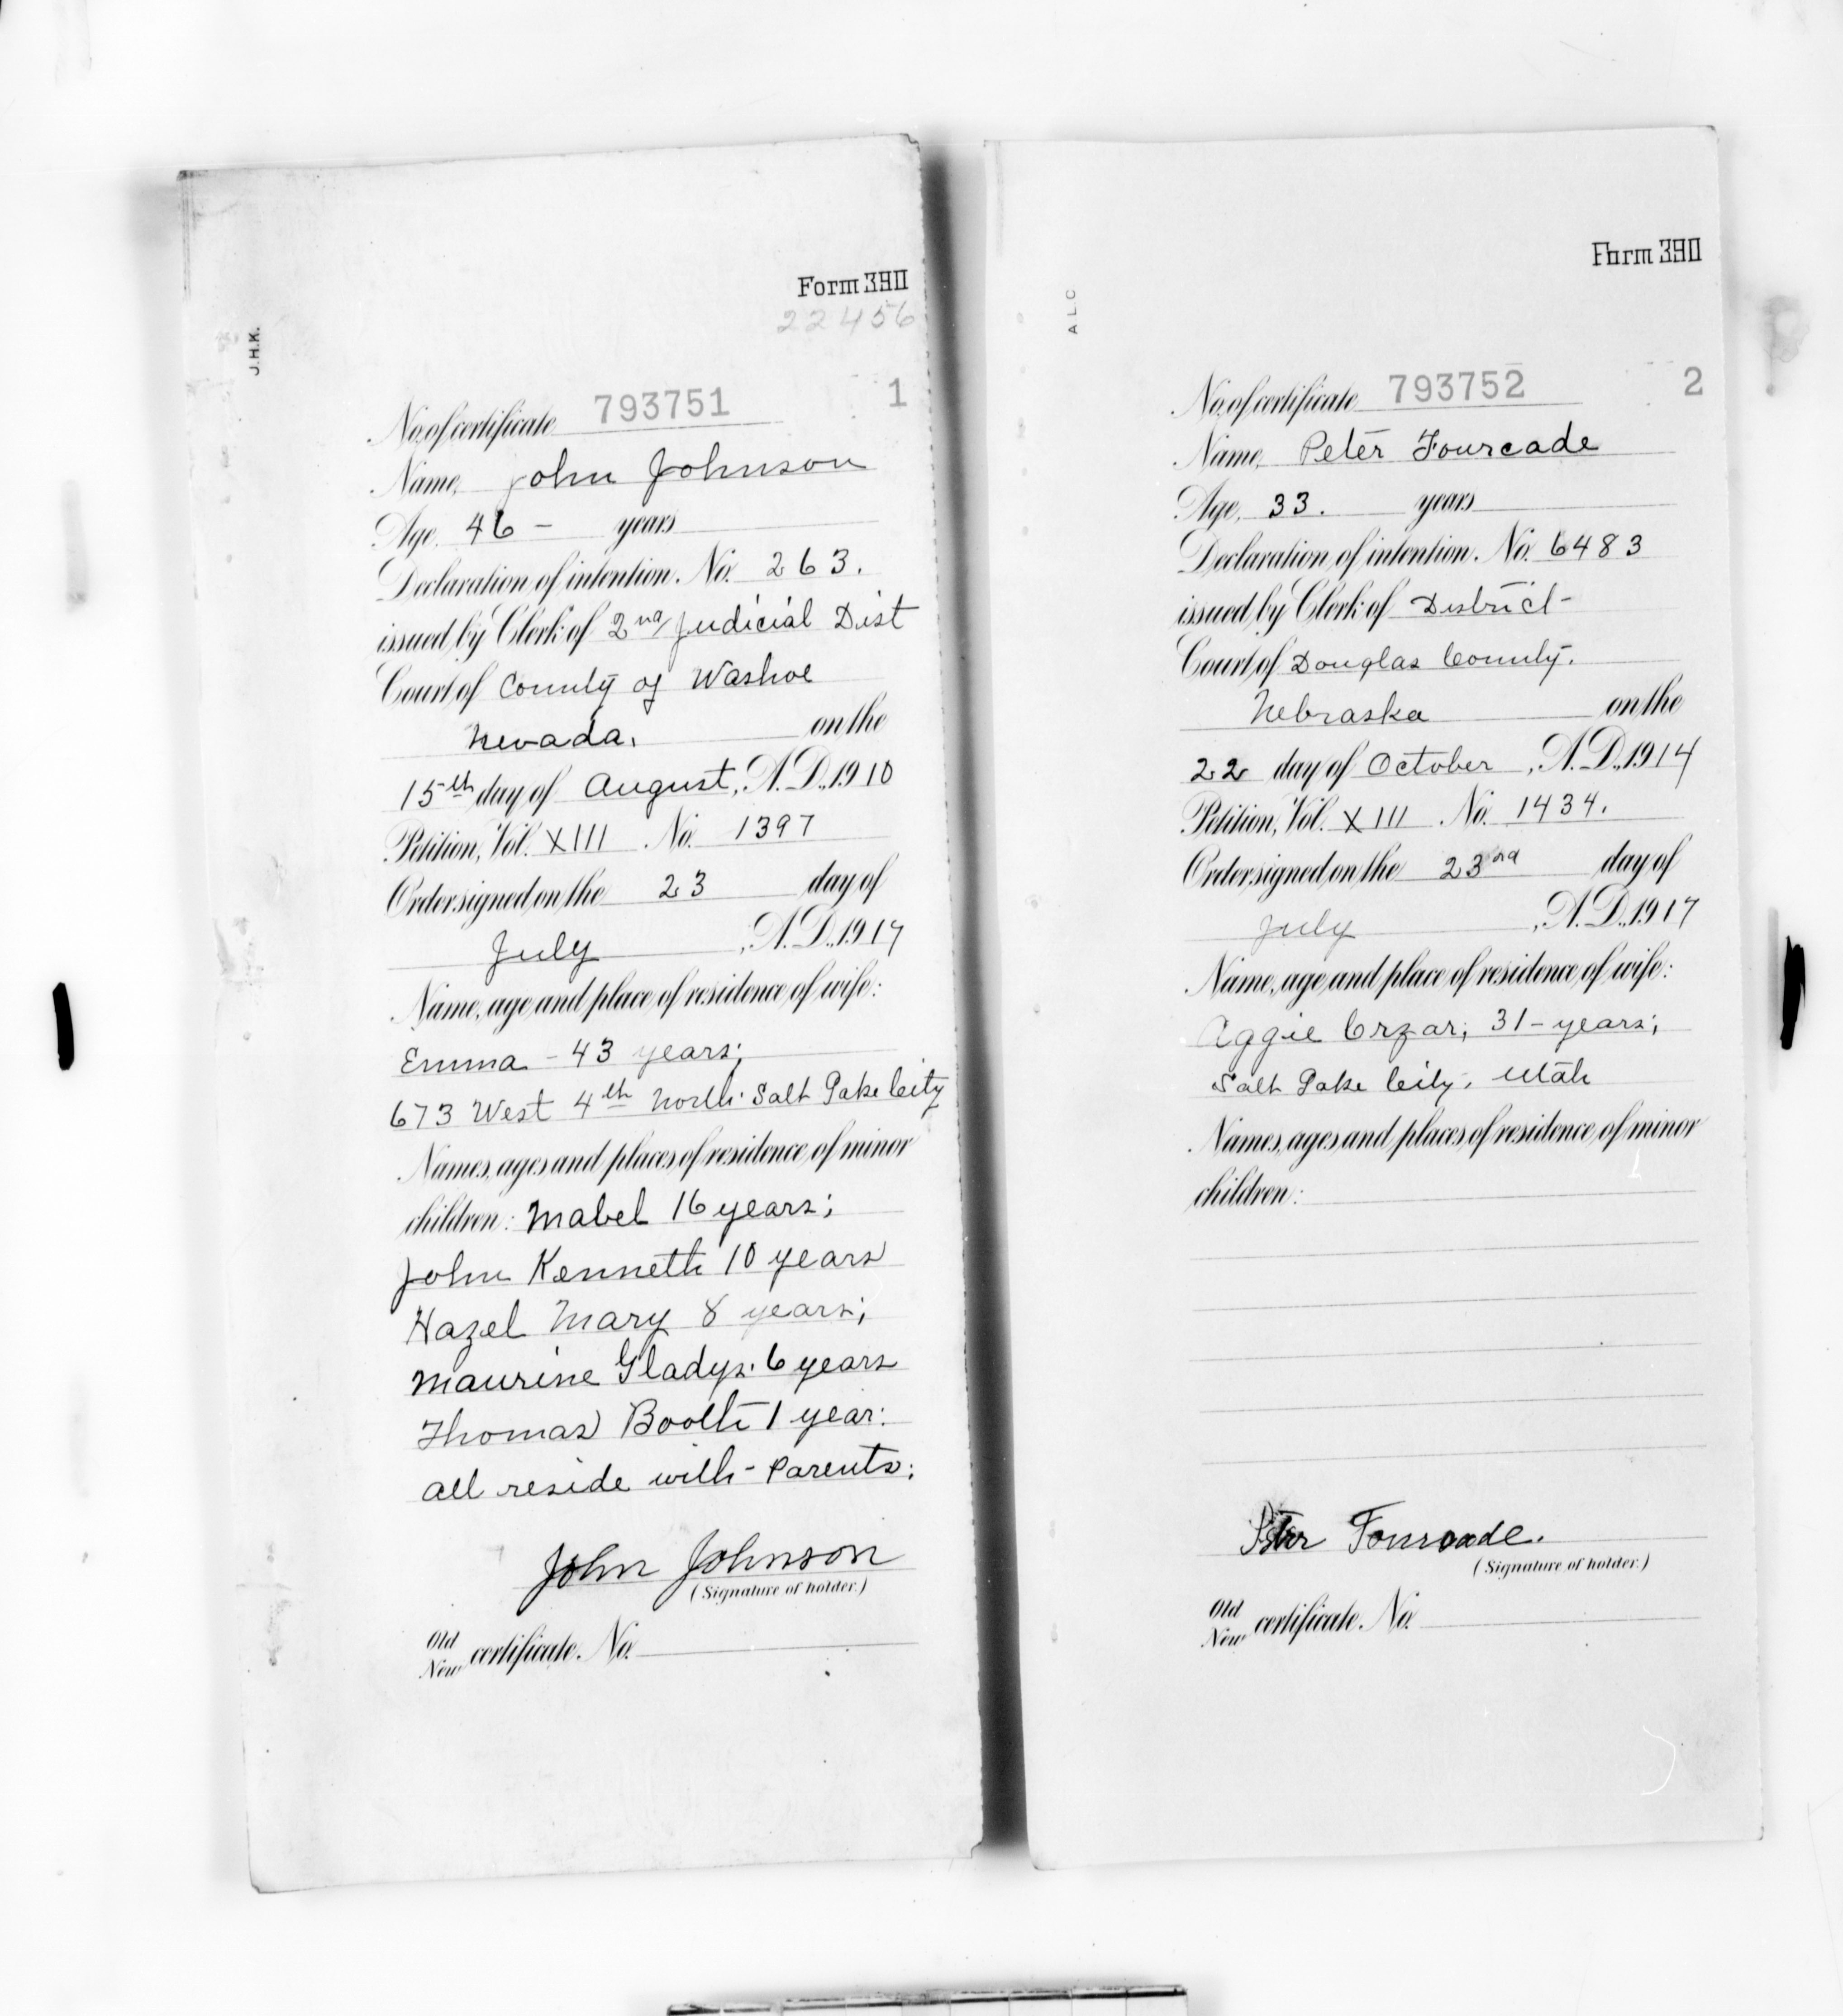 Form 390
22456
J.H.K.
No. of certificate 793751 1
Name, John Johnson
Age, 46 - years
Declaration of intention. No. 263.
issued by Clerk of 2nd Judicial Dist
Court of County of Washoe
Nevada. on the
15th day of August, A.D., 1910
Petition, Vol. XIII No. 1397
Order signed on the 23 day of
July, A.D., 1917
Name, age and place of residence of wife:
Emma - 43 years;
673 West 4th North. Salt Lake City
Names, ages and places of residence of minor
children: Mabel 16 years;
John Kenneth 10 years
Hazel Mary 8 years;
Maurine Gladys. 6 years
Thomas Booth 1 year.
all reside with - Parents;
John Johnson
(Signature of holder.)
Old
New certificate. No.
Form 390
ALC
No. of certificate 793752 2
Name, Peter Fourcade
Age, 33. years
Declaration of intention. No. 6483
issued by Clerk of District -
Court of Douglas County.
Nebraska on the
22 day of October, A.D., 1914
Petition, Vol. XIII. No. 1434.
Order signed on the 23rd day of
July, A.D., 1917
Name, age and place of residence of wife:
Aggie 31 - years;
Salt Lake City, Utah
Names, ages and places of residence of minor
children:
Peter Fourcade.
(Signature of holder.)
Old
New certificate. No.